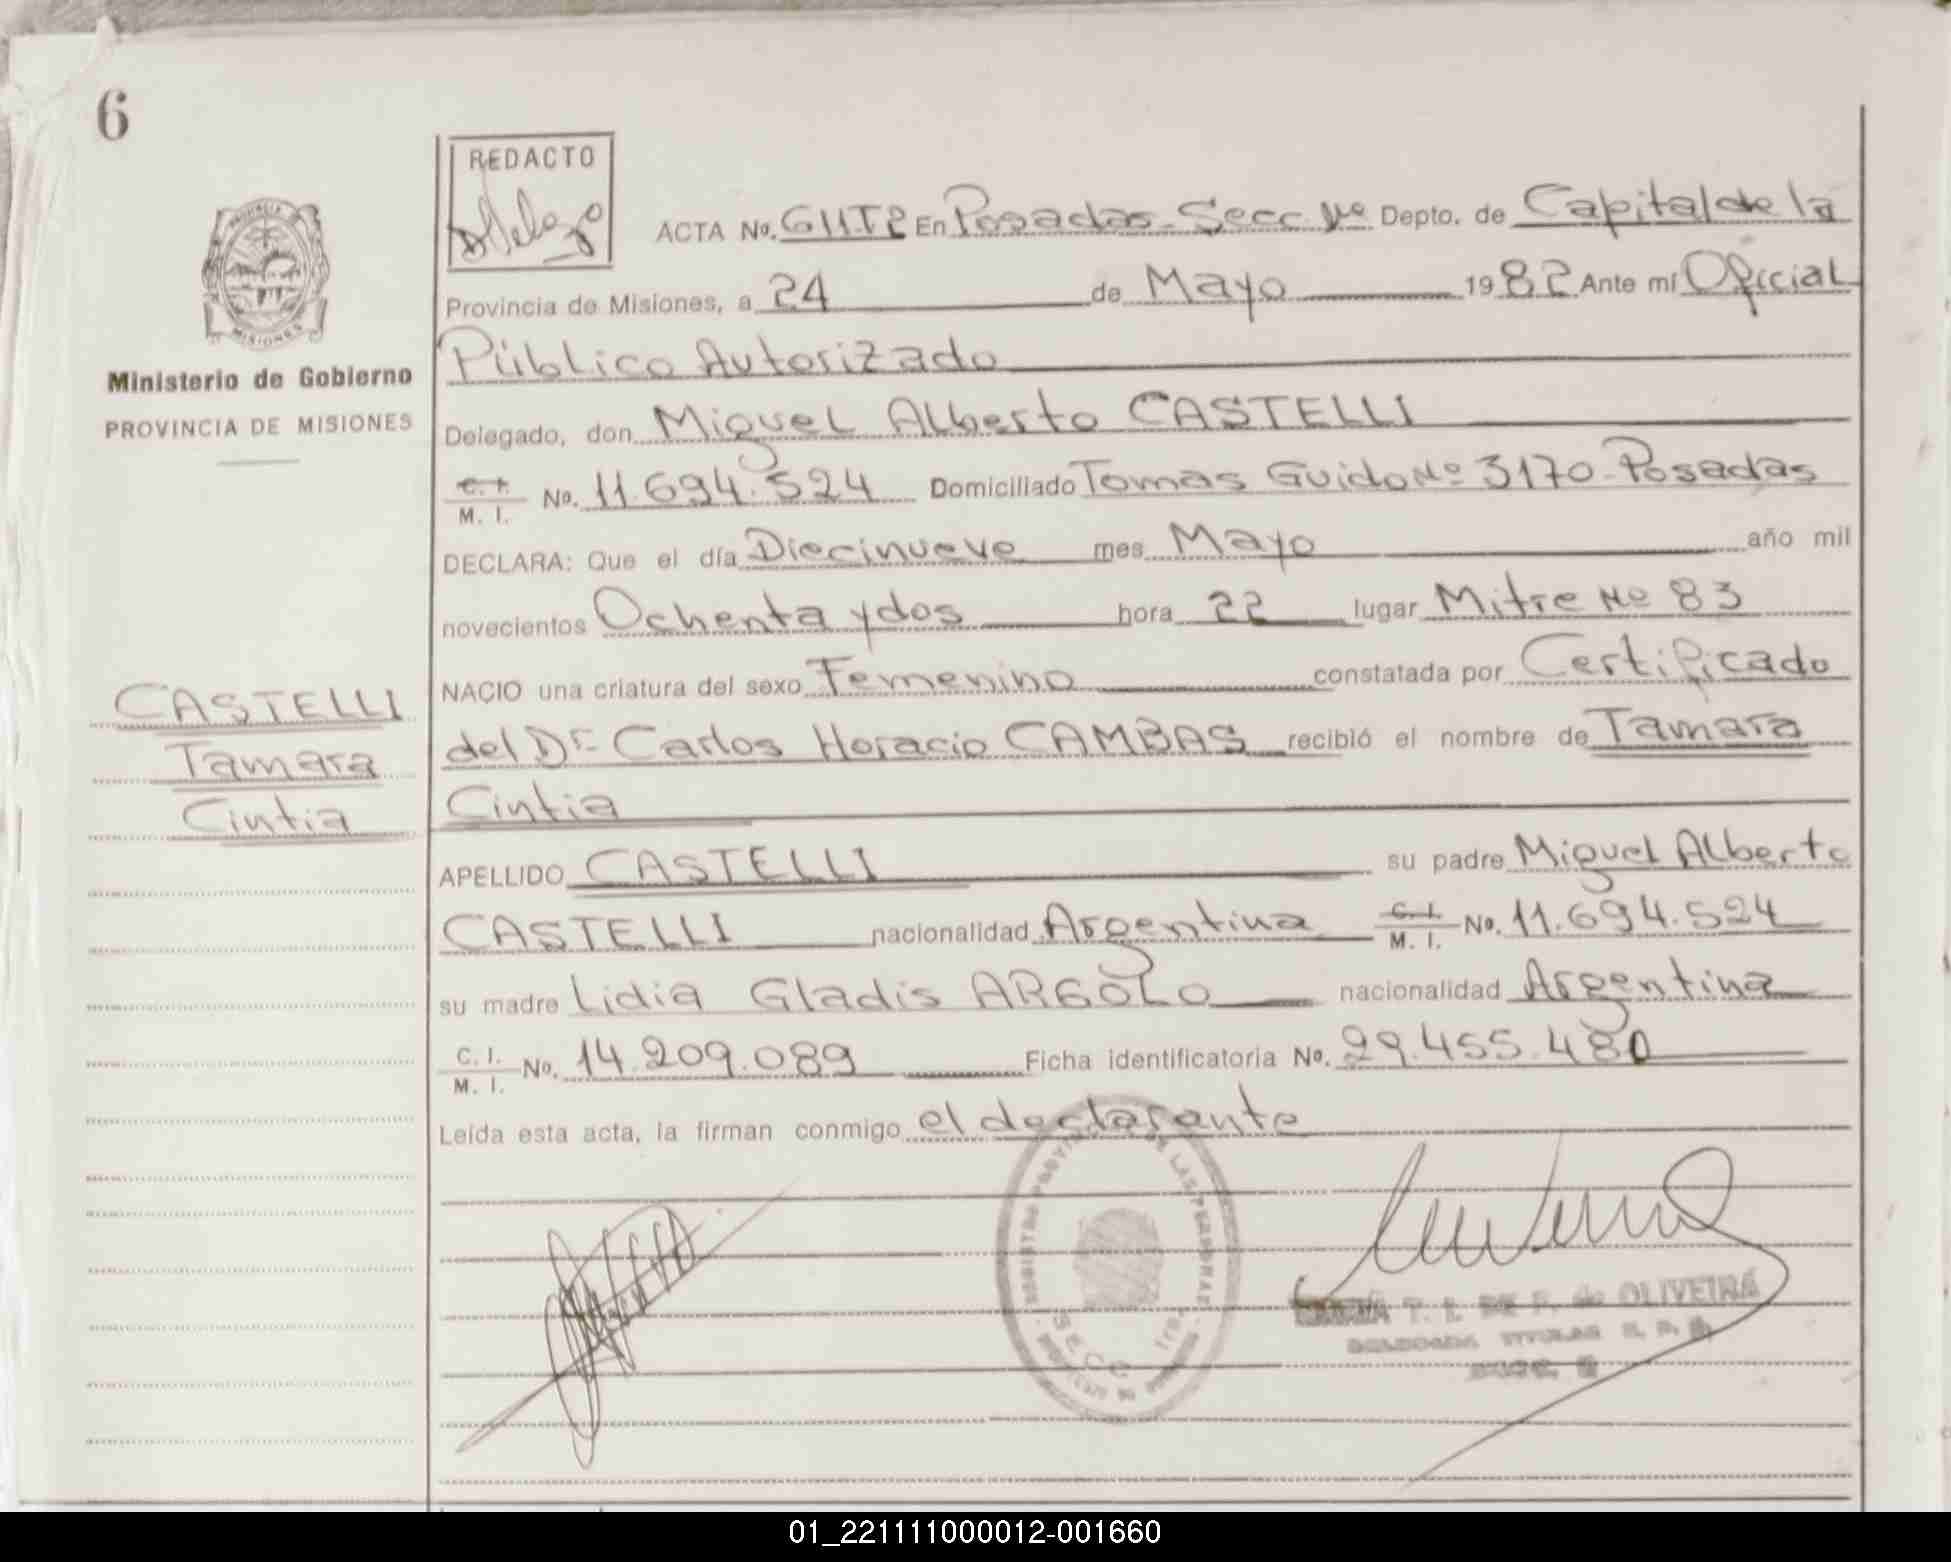 6
REDACTO
PROVINCIA
MISIONES
Ministerio de Gobierno
PROVINCIA DE MISIONES
CASTELLI
Tamara
Cintia
ACTA No. 611.T2 En Posadas - Secc Depto. de Capital de la
Provincia de Misiones, a 24 de Mayo 1982 Ante mí Oficial
Público Autorizado
Delegado, don Miguel Alberto CASTELLI
C. I. M. I. No. 11.694.524 Domiciliado Tomas Guido No 3170 - Posadas
DECLARA: Que el día Diecinueve mes Mayo año mil
novecientos Ochenta y dos hora 22 lugar Mitre No 83
NACIO una criatura del sexo Femenino constatada por Certificado
del Dr. Carlos Horacio CAMBAS recibió el nombre de Tamara
Cintia
APELLIDO CASTELLI su padre Miguel Alberto
CASTELLI nacionalidad Argentina C. I. M. I. No. 11.694.524
su madre Lidia Gladis ARGOLO nacionalidad Argentina
C. I. M. I. No. 14.209.089 Ficha identificatoria No. 29.455.480
Leída esta acta, la firman conmigo el declarante
DE LAS PERSONAS
SECC
T. I. DE F. de OLIVEIRA
01_221111000012-001660